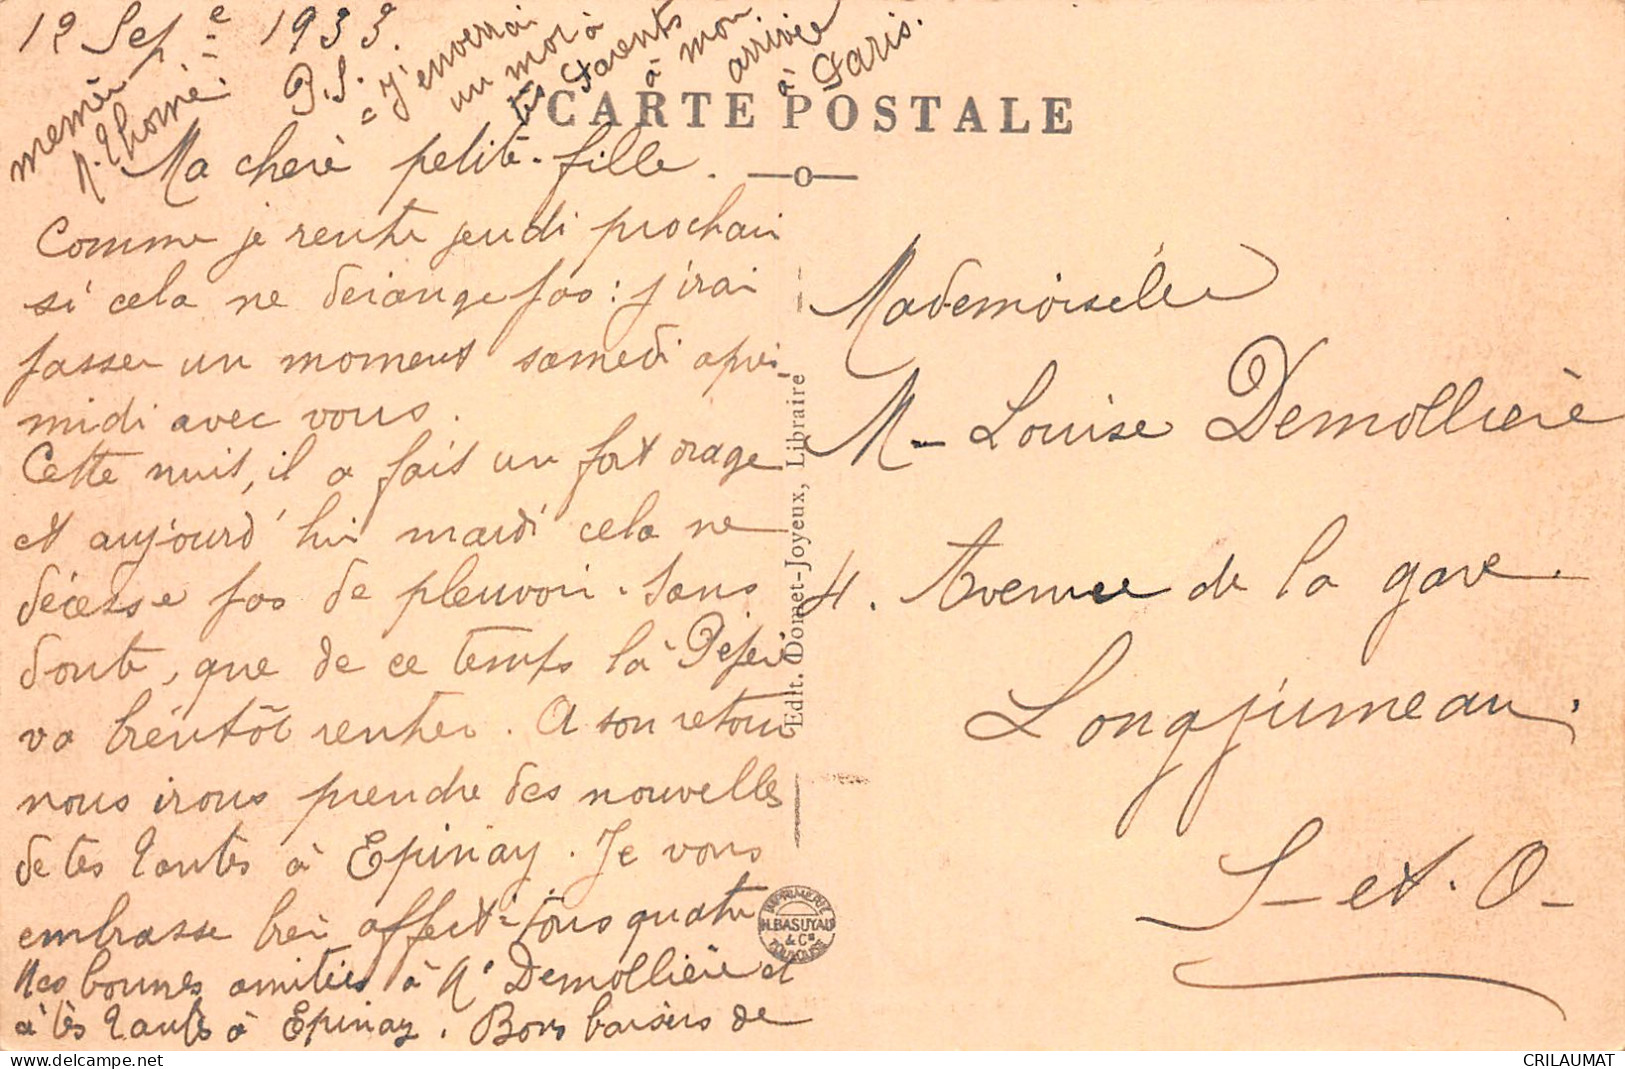 12 Sep.e 1933.
P.S. = J'enverrai
un mot à
tes Parents
à mon
arrivée
à Paris.
CARTE POSTALE
Ma cherè petite-fille.
Comme je rentre jeudi prochain
si cela ne derange pas: j'irai
passer un moment samedi aprè-
midi avec vous.
Cette nuit, il a fait un fort orage
et aujourd'hui mardi cela ne
décesse pas de pleuvoir. Sans
doute, que de ce temps là Pépère
va bientôt rentrer. A son retour
nous irons prendre des nouvelles
de tes tantes à Epinay. Je vous
embrasse bien affectt tous quatre
Mes bonnes amitiés à Me Demollière et
à tes tantes à Epinay. Bons baisers de
memèr
Mademoiselle
M-Louise Demollierè
4. Avenue de la gare.
Longjumeau.
S-et.O-
Edit. Domet-Joyeux, Libraire
IMPRIMERIE
H.BASUYAU
& Cie
TOULOUSE
delcampe.net
CRILAUMAT